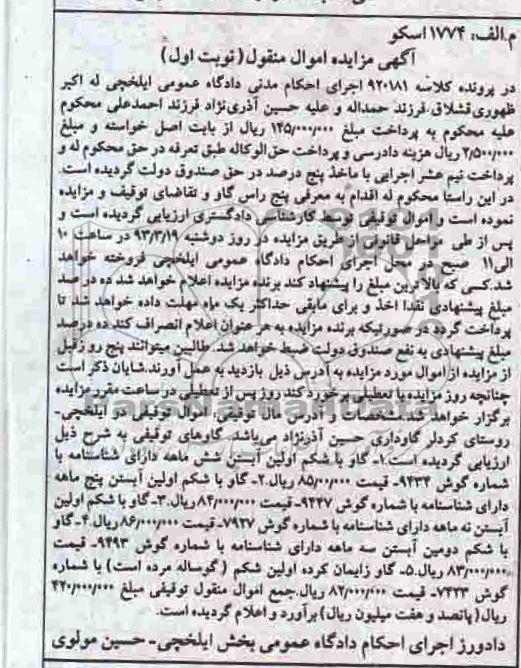 م.الف: ۱۷۷۴ اسکو
آگهی مزایده اموال منقول (نوبت اول)
در پرونده کلاسه ۹۲۰۱۸۱ اجرای احکام مدنی دادگاه عمومی ایلخچی له اکبر
ظهوری‌قشلاق فرزند حمداله و علیه حسین آذری‌نژاد فرزند احمدعلی محکوم
علیه محکوم به پرداخت مبلغ ۱۴۵/۰۰۰/۰۰۰ ریال از بابت اصل خواسته و مبلغ
۲/۵۰۰/۰۰۰ ریال هزینه دادرسی و پرداخت حق‌الوکاله طبق تعرفه در حق محکوم له و
پرداخت نیم عشر اجرایی با ماخذ پنج درصد در حق صندوق دولت گردیده است.
در این راستا محکوم له اقدام به معرفی پنج راس گاو و تقاضای توقیف و مزایده
نموده است و اموال توقیفی توسط کارشناسی دادگستری ارزیابی گردیده است و
پس از طی مراحل قانونی از طریق مزایده در روز دوشنبه ۹۳/۳/۱۹ در ساعت ۱۰
الی۱۱ صبح در محل اجرای احکام دادگاه عمومی ایلخچی فروخته خواهد
شد.کسی که بالاترین مبلغ را پیشنهاد کند برنده مزایده اعلام خواهد شد ده درصد
مبلغ پیشنهادی نقدا اخذ و برای مابقی حداکثر یک ماه مهلت داده خواهد شد تا
پرداخت گردد در صورتیکه برنده مزایده به هر عنوان اعلام انصراف کند ده درصد
مبلغ پیشنهادی به نفع صندوق دولت ضبط خواهد شد. طالبین میتوانند پنج روز قبل
از مزایده از اموال مورد مزایده به آدرس ذیل بازدید به عمل آورند.شایان ذکر است
چنانچه روز مزایده با تعطیلی برخورد کند روز پس از تعطیلی در ساعت مقرر مزایده
برگزار خواهد شد.مشخصات و آدرس مال توقیفی، اموال توقیفی در ایلخچی-
روستای کردلر گاوداری حسین آذرنژاد می‌باشد. گاوهای توقیفی به شرح ذیل
ارزیابی گردیده است.۱- گاو با شکم اولین آبستن شش ماهه دارای شناسنامه با
شماره گوش ۹۴۳۴- قیمت ۸۵/۰۰۰/۰۰۰ ریال.۲- گاو با شکم اولین آبستن پنج ماهه
دارای شناسنامه با شماره گوش ۹۴۴۷- قیمت ۸۴/۰۰۰/۰۰۰ ریال.۳- گاو با شکم اولین
آبستن نه ماهه دارای شناسنامه با شماره گوش ۷۹۲۷- قیمت ۸۶/۰۰۰/۰۰۰ ریال.۴- گاو
با شکم دومین آبستن سه ماهه دارای شناسنامه با شماره گوش ۹۴۹۳- قیمت
۸۳/۰۰۰/۰۰۰ ریال.۵- گاو زایمان کرده اولین شکم (گوساله مرده است) با شماره
گوش ۷۴۲۳- قیمت ۸۲/۰۰۰/۰۰۰ ریال.جمع اموال منقول توقیفی مبلغ ۴۲۰/۰۰۰/۰۰۰
ریال (پانصد و هفت میلیون ریال) برآورد و اعلام گردیده است.
دادورز اجرای احکام دادگاه عمومی بخش ایلخچی- حسین مولوی